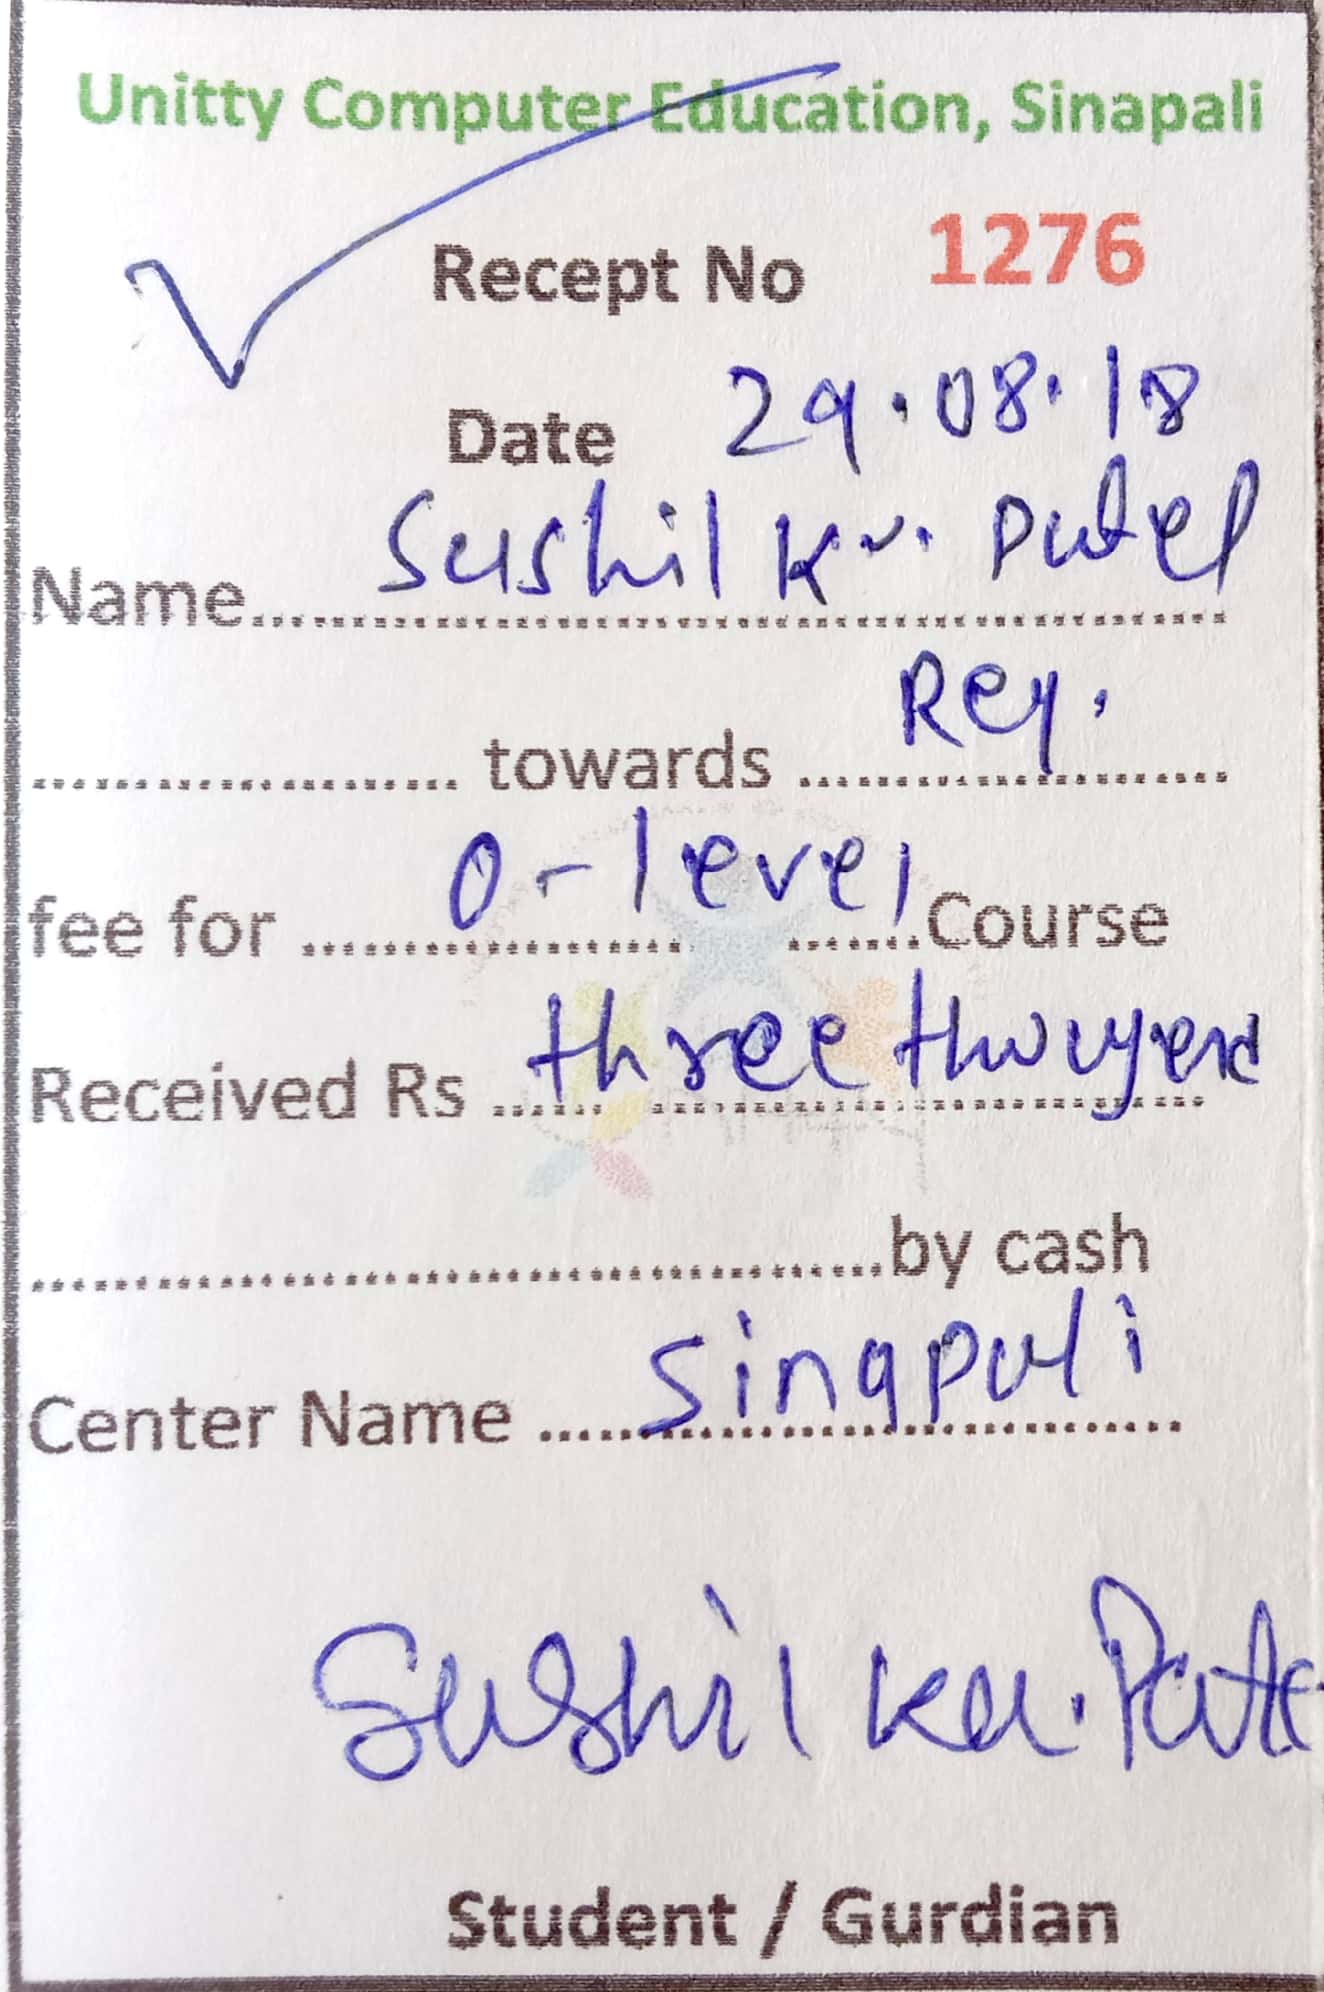 Unitty Computer Education, Sinapali
Recept No 1276
Date 29.08.18
Name Sushil Ku. Patel
towards Reg.
fee for O-level Course
Received Rs three thousand
by cash
Center Name Sinapali
Sushil Ku. Pate
Student / Gurdian